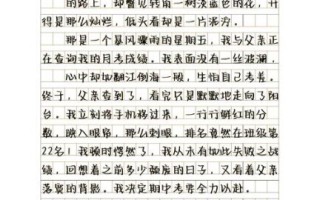 的路上，却瞥见转角一树淡蓝色的花，开
得是那么灿烂，低头看却是一片落芳。
那是一个暴风骤雨的星期五，我与父亲正
在查询我的月考成绩。我表面没有一丝波澜，
心中却如翻江倒海一般，生怕自己考差。
终于，父亲查到了，看完只是默默地走向了阳
台。我立刻将手机移过来，一行行鲜红的分
数，映入眼帘，那么刺眼，排名竟然在班级第
22名！我顿时愕然了，我从未有如此失败之战
绩，回想着之前多少颓废的日子，又看着父亲
落寞的背影，我决定期中考要全力以赴。